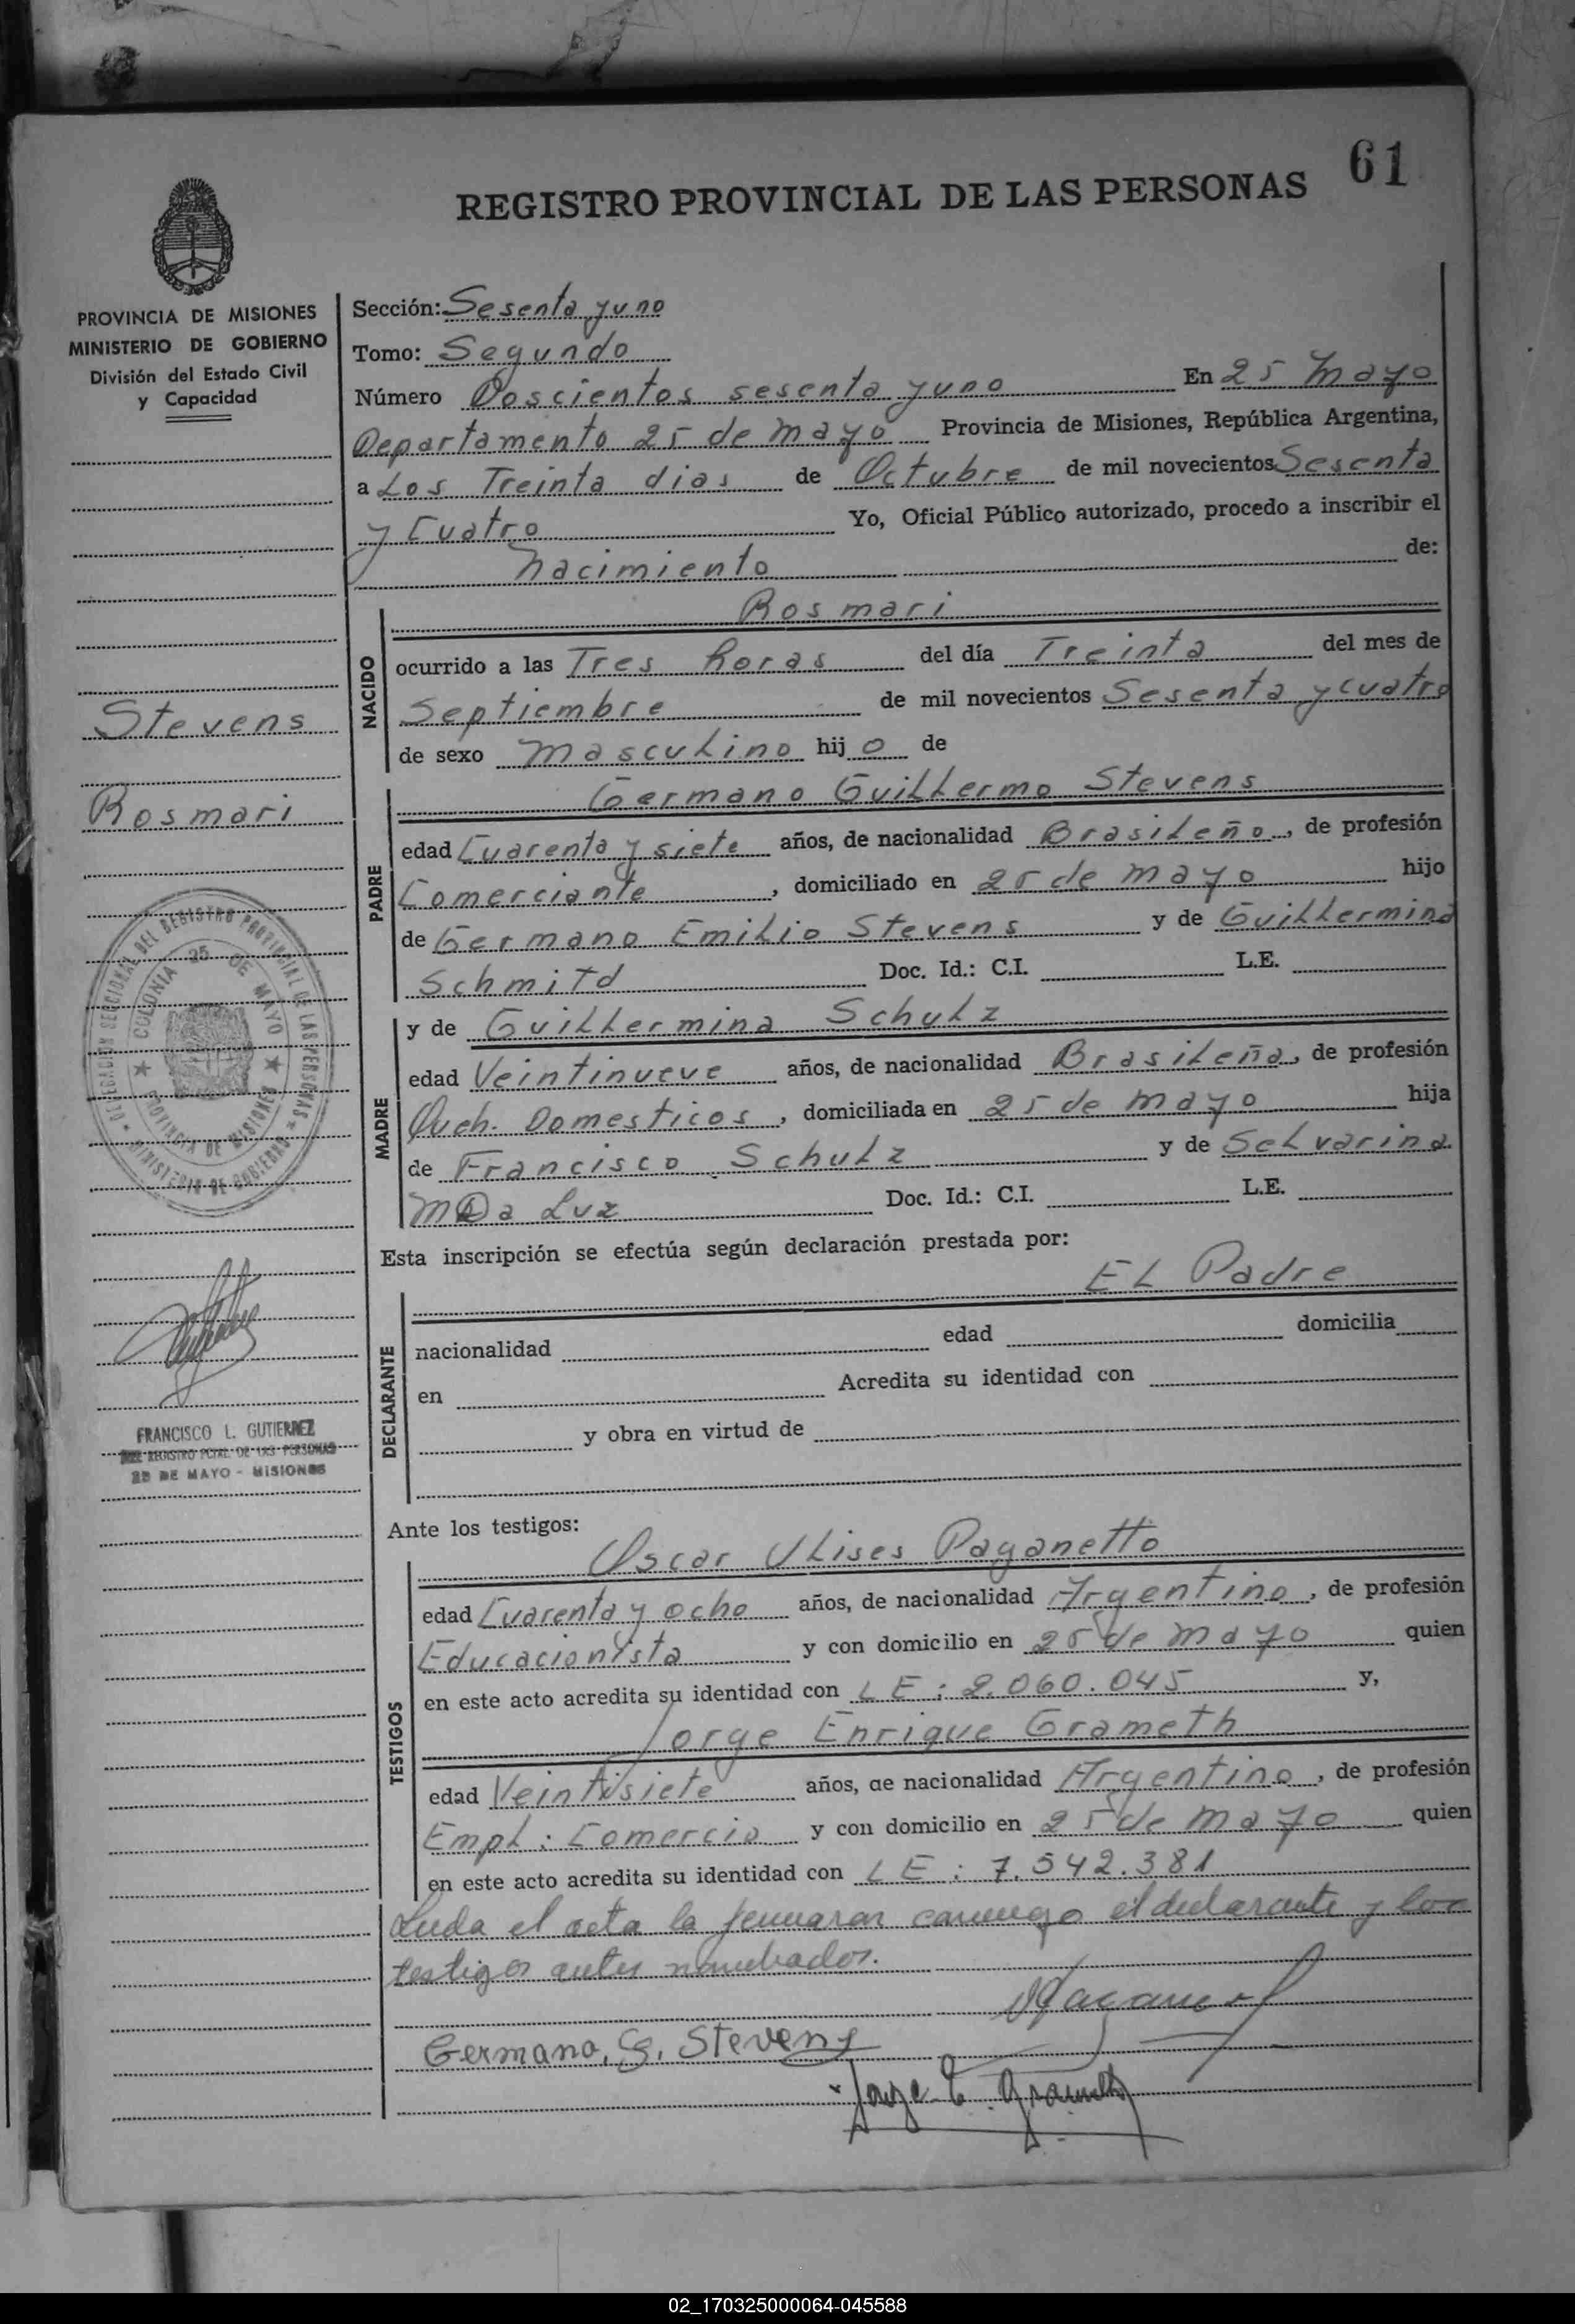 61
REGISTRO PROVINCIAL DE LAS PERSONAS
PROVINCIA DE MISIONES
MINISTERIO DE GOBIERNO
División del Estado Civil
y Capacidad
Stevens
Rosmari
DELEGACIÓN SECCIONAL DEL REGISTRO PROVINCIAL DE LAS PERSONAS * MINISTERIO DE GOBIERNO *
COLONIA 25 DE MAYO ★ PROVINCIA DE MISIONES ★
FRANCISCO L. GUTIERREZ
JEFE REGISTRO PCIAL. DE LAS PERSONAS
25 DE MAYO - MISIONES
Sección: Sesenta y uno
Tomo: Segundo
Número Doscientos sesenta y uno En 25 Mayo
Departamento 25 de mayo Provincia de Misiones, República Argentina,
a Los Treinta dias de Octubre de mil novecientos Sesenta
y Cuatro Yo, Oficial Público autorizado, procedo a inscribir el
nacimiento de:
NACIDO
Rosmari
ocurrido a las Tres horas del día Treinta del mes de
Septiembre de mil novecientos Sesenta y cuatro
de sexo masculino hij o de
PADRE
Germano Guillermo Stevens
edad Cuarenta y siete años, de nacionalidad Brasileño, de profesión
Comerciante, domiciliado en 25 de mayo hijo
de Germano Emilio Stevens y de Guillermina
Schmitd Doc. Id.: C.I. L.E.
MADRE
y de Guillermina Schulz
edad Veintinueve años, de nacionalidad Brasileña, de profesión
Queh. Domesticos, domiciliada en 25 de mayo hija
de Francisco Schulz y de Selvarina
Luz Doc. Id.: C.I. L.E.
Esta inscripción se efectúa según declaración prestada por:
DECLARANTE
EL Padre
nacionalidad edad domicilia
en Acredita su identidad con
y obra en virtud de
Ante los testigos:
TESTIGOS
Oscar Ulises Paganetto
edad Cuarenta y ocho años, de nacionalidad Argentino, de profesión
Educacionista y con domicilio en 25 de mayo quien
en este acto acredita su identidad con LE: 2.060.045 y,
Jorge Enrique Grameth
edad Veintisiete años, de nacionalidad Argentino, de profesión
Empl: Comercio y con domicilio en 25 de mayo quien
en este acto acredita su identidad con LE: 7.542.381
Leida el acta la firmaron conmigo el declarante y los
testigos antes nombrados.
Germano. G. Stevens
Jorge E. Grameth
02_170325000064-045588